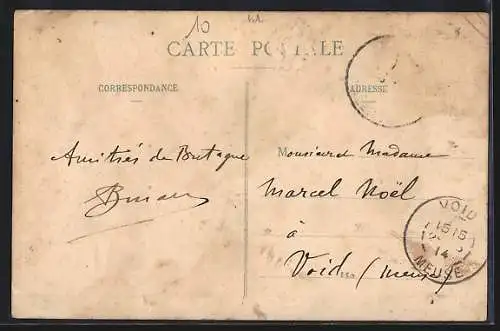 10
CARTE POSTALE
CORRESPONDANCE
ADRESSE
Amitiés de Bretagne
Monsieur et Madame
Marcel Noël
à
Void (Meuse)
VOID
15 15
14
MEUSE